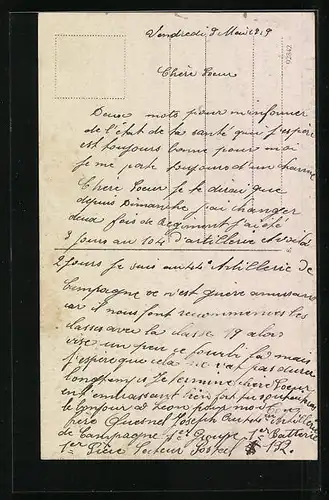 Vendredi 9 Mai 1919
92342
Chère Soeur
Deux mots pour m'informer
de l'état de ta santé que j'espère
est toujours bonne pour moi
je me porte toujours d'un charme
Chere Soeur je te dirai que
depuis Dimanche j'ai changer
deux fois de Regiment j'ai été
3 jours au 104 d'artillerie et voilà
2 jours je suis au Artillerie de
Campagne ce n'est guère amusant
car il nous font recommencer les
classes avec la classe 19 alors
vise un peu ce fourbi là mais
j'espère que cela ne vat pas durer
longtemps Je termine chère Soeur
en t'embrassant bien fort tu souhaiteras
le bonjour à Leon pour moi ton
frère Quesnel Joseph Artillerie
de Campagne 1er Groupe 1er Batterie
1er Pièce Secteur Postal 192.